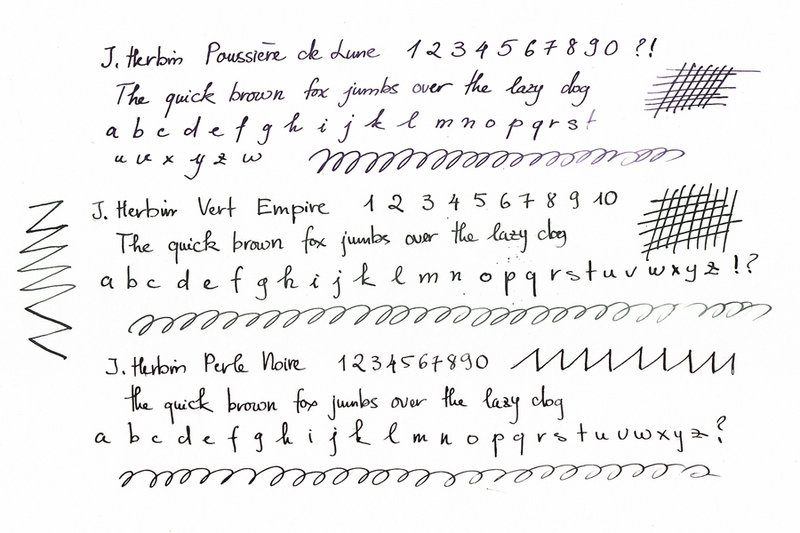 J. Herbin Poussière de Lune 1 2 3 4 5 6 7 8 9 0 ?!
The quick brown fox jumbs over the lazy dog
a b c d e f g h i j k l m n o p q r s t
u v x y z w
J. Herbin Vert Empire 1 2 3 4 5 6 7 8 9 10
The quick brown fox jumbs over the lazy dog
a b c d e f g h i j k l m n o p q r s t u v w x y z !?
J. Herbin Perle Noire 1 2 3 4 5 6 7 8 9 0
the quick brown fox jumbs over the lazy dog
a b c d e f g h i j k l m n o p q r s t u v w x y z ?